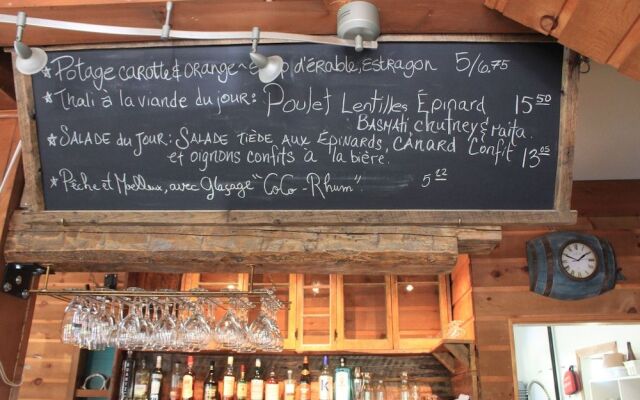 * Potage carotte & orange ~ d'érable, estragon 5/6.75
* Thali à la viande du jour: Poulet Lentilles Épinard 15 50
Basmati, chutney & raita.
* Salade du jour: Salade tiède aux épinards, canard confit 13 05
et oignons confits à la bière.
* Pêche et Moelleux, avec glaçage "CoCo-Rhum" 5 22